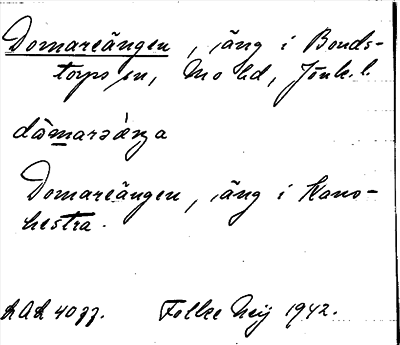 Domareängen, äng i Bonds-
torps sn, Mo hd, Jönk. l.
dòmarəǽŋa
Domareängen, äng i
hestra.
40
Folke Neij 1942.